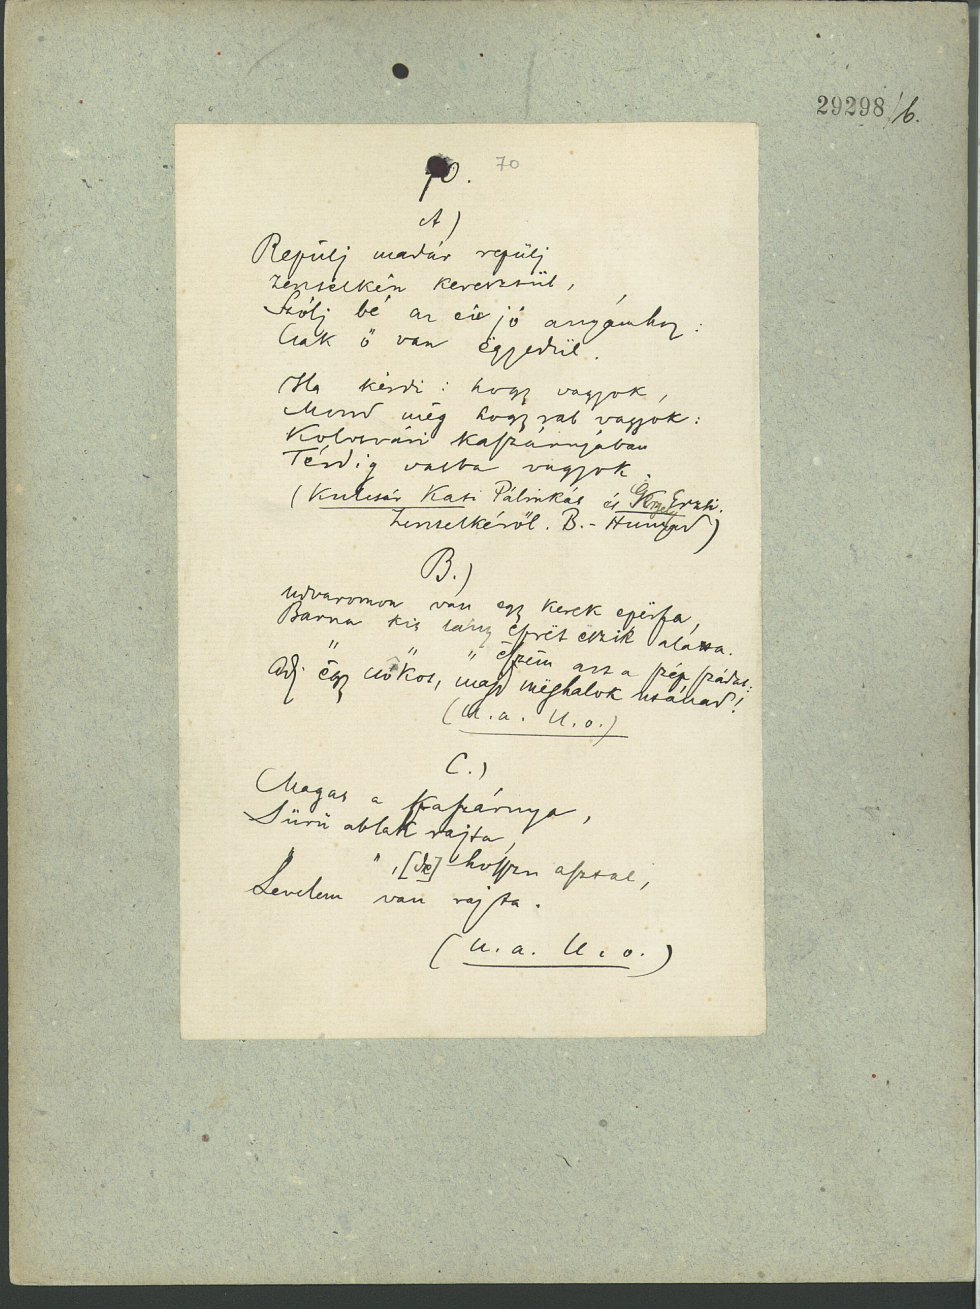 29298/b.
70. 70
A)
Repülj madár repülj
Zentelkén keresztül,
Szólj bé az én jó anyámhoz:
Csak ő van ëgyedül.
Ha kérdi: hogy vagyok,
Mond még hogy rab vagyok:
Kolosvári kaszárnyában
Térdig vasba vagyok.
(Kulcsár Kati Pálinkás és Erzsi.
Zentelkéről. B.-Hunyad)
B.)
Udvaromon van egy kerek epërfa,
Barna kis lány ëprët ëszik alatta.
" " " ëszëm azt a szép szádat:
Adj ëgy csókot, majd mëghalok utánad!
(U.a. U.o.)
C.)
Magas a kaszárnya,
Sürü ablak rajta,
" ", [de] hosszu asztal,
Levelem van rajta.
(U.a. U.o.)